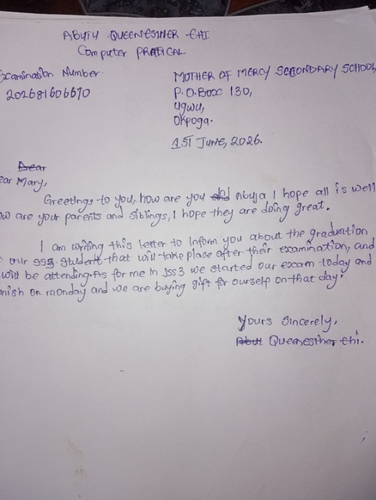 ABUTU QUEENESTHER-EHI
Computer PRATICAL
Examination Number
202681606670
MOTHER OF MERCY SECONDARY SCHOOL,
P.O.Boox 130,
Ugwu,
Okpoga.
1ST JUNE, 2026.
Dear
ear Mary,
Greetings to you, how are you and Abuja I hope all is well
ow are your parents and siblings, I hope they are doing great.
I am writing this letter to inform you about the graduation
our SS3 student that will take place after their examination, and
will be attending. As for me in JSS3 we started our exam today and
nish on monday and we are buying gift for ourself on that day.
Yours Sincerely,
Abut Queenesther Ehi.